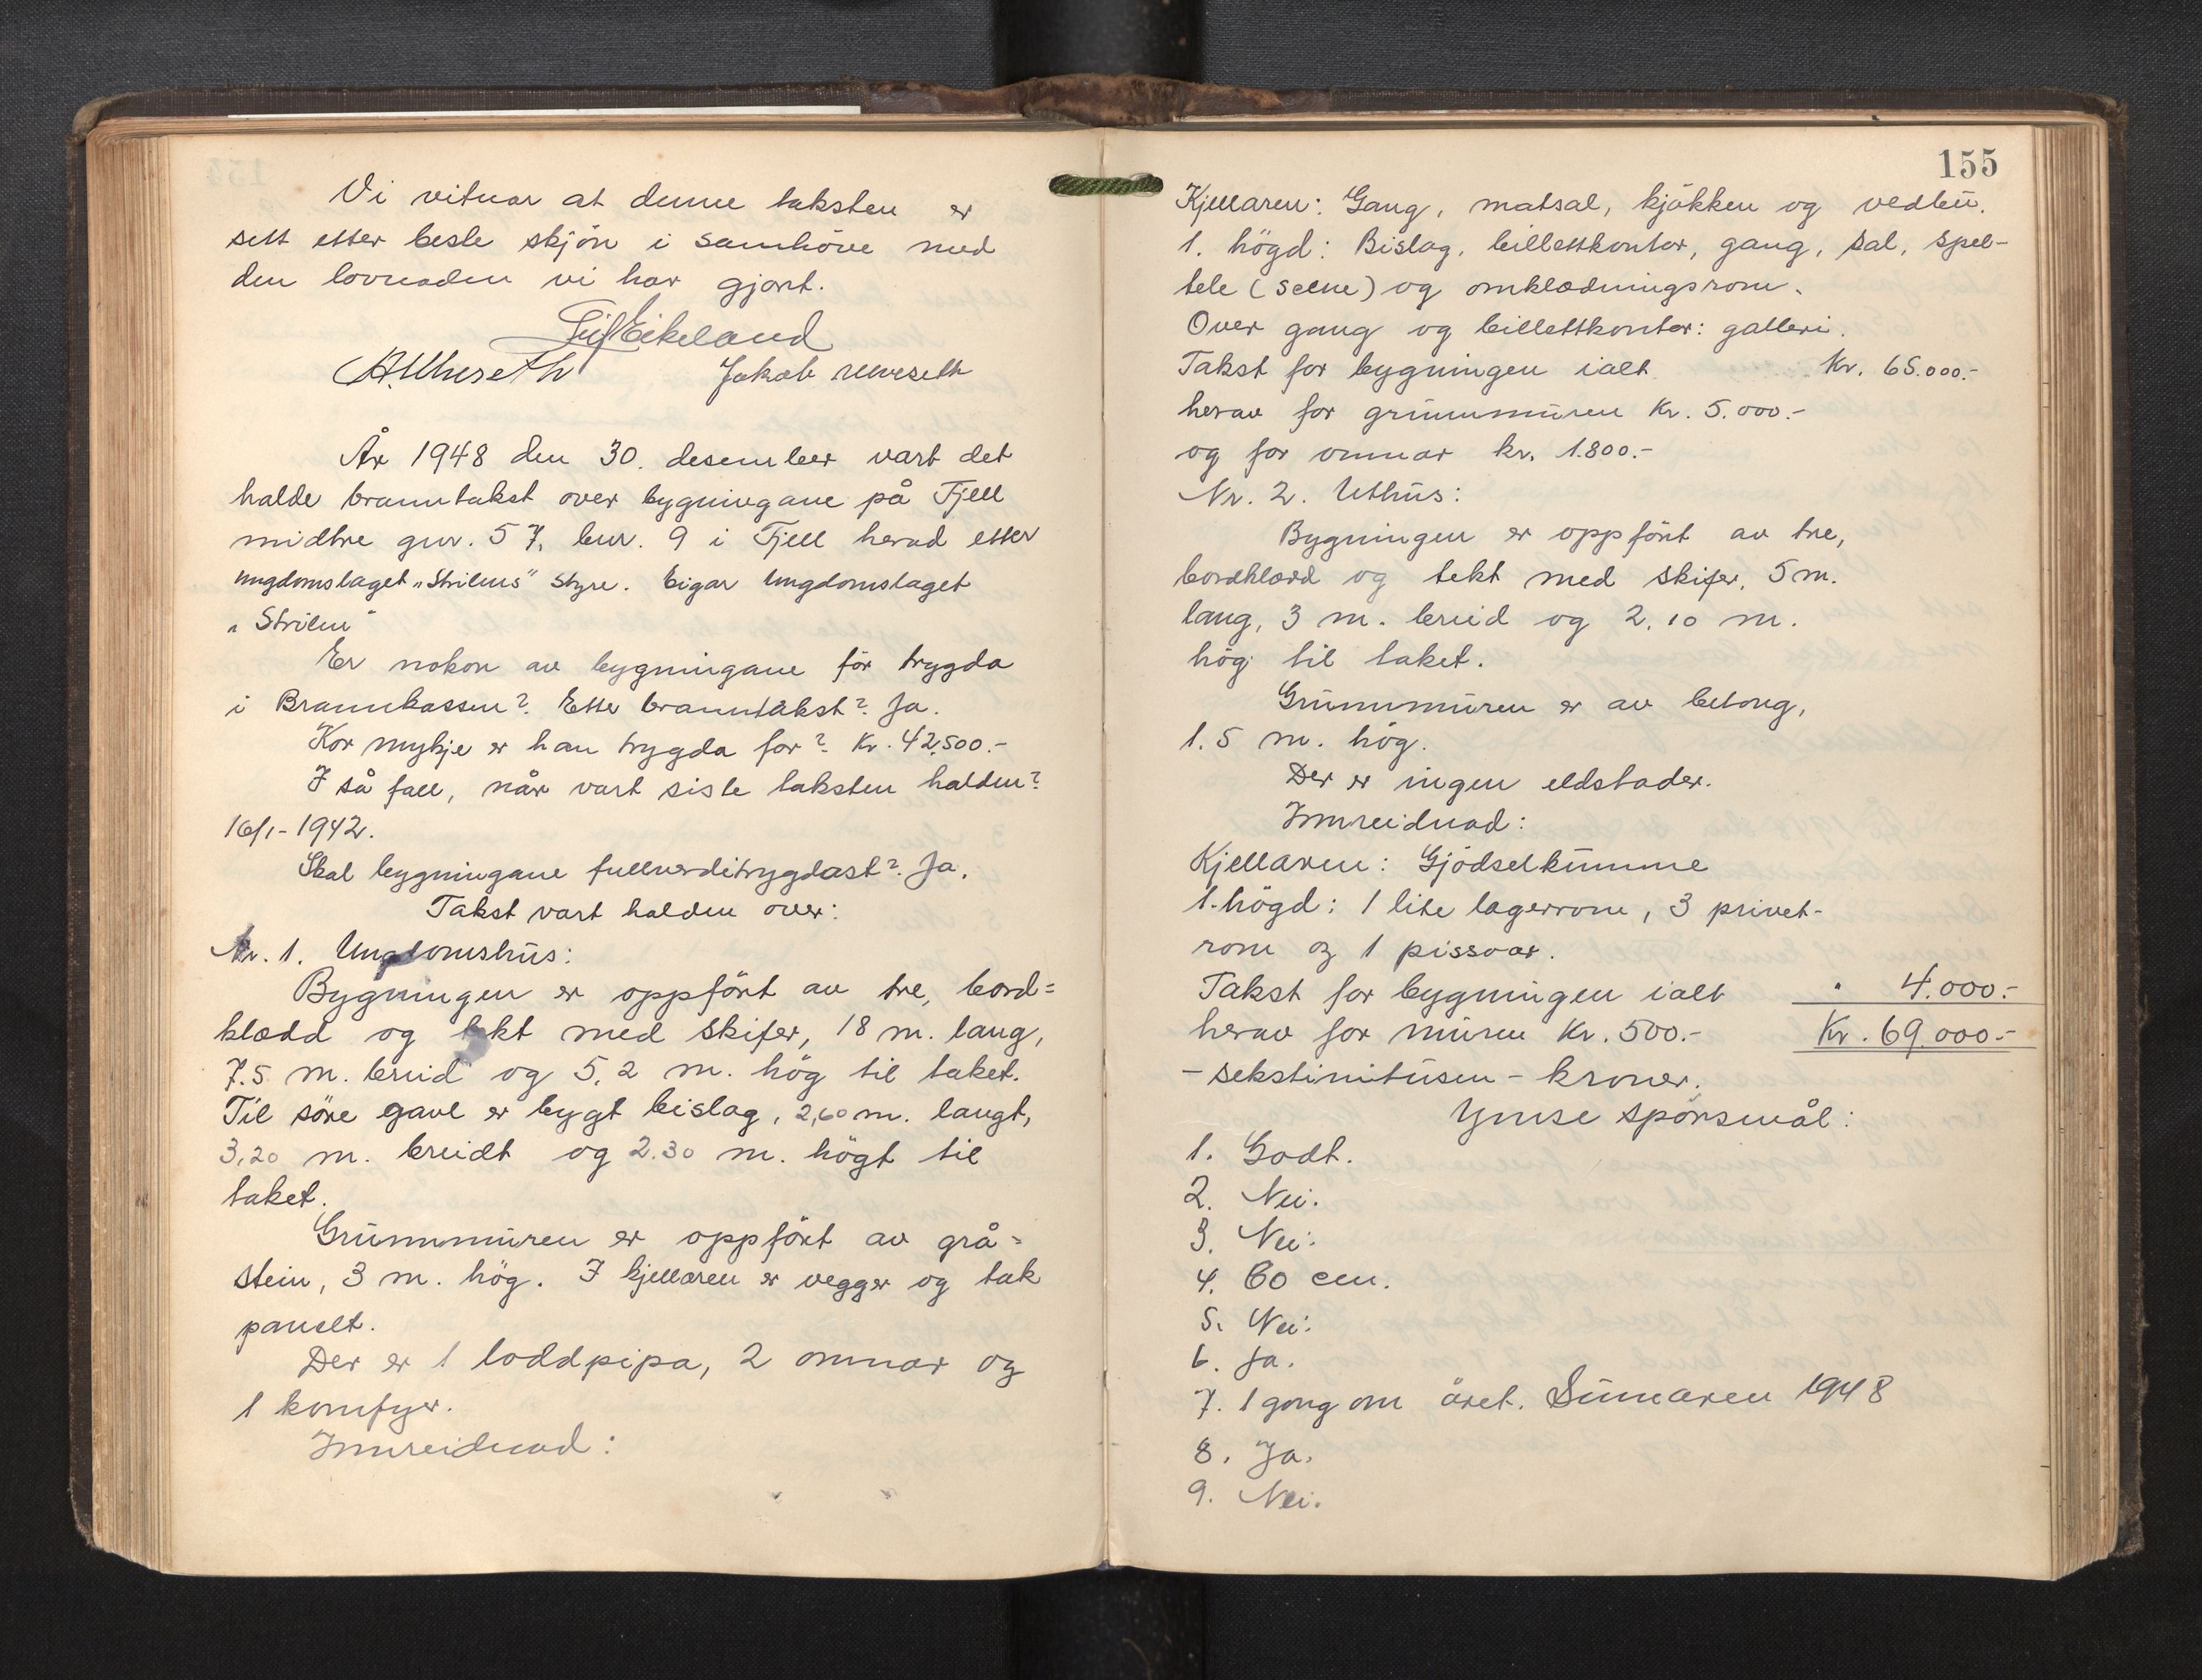 Vi vitnar at denne taksten er
sett etter beste skjön i samhöve med
den lovnaden vi har gjort.
Leif Eikeland
A. Ulveseth Jakob Ulveseth
År 1948 den 30. desember vart det
halde branntakst over bygningane på Fjell
midtre gnr. 57, bnr. 9 i Fjell herad etter
ungdomslaget „Strilens" styre. Eigar Ungdomslaget
„Strilen"
Er nokon av bygningane för trygda
i Brannkassen? Etter branntakst? Ja.
Kor mykje er han trygda for? Kr. 42.500.-
I så fall, når vart siste taksten halden?
16/1-1942.
Skal bygningane fullverditrygdast? Ja.
Takst vart halden over:
Nr. 1. Ungdomshus:
Bygningen er oppfört av tre, bord=
klædd og tekt med skifer, 18 m. lang,
7.5 m. breid og 5,2 m. hög til taket.
Til söre gavl er bygt bislag, 2,60 m. langt,
3,20 m. breidt og 2.30 m. högt til
taket.
Grunnmuren er oppfört av grå=
stein, 3 m. hög. I kjellaren er vegger og tak
panelt.
Der er 1 loddpipa, 2 omnar og
1 komfyr.
Innreidnad:
155
Kjellaren: Gang, matsal, kjökken og vedbu.
1. högd: Bislag, billettkontor, gang, sal, spel-
tele (scene) og omklædningsrom.
Over gang og billettkontor: galleri.
Takst for bygningen ialt Kr. 65.000.-
herav for grunnmuren Kr. 5.000.-
og for omnar kr. 1.800.-
Nr. 2. Uthus:
Bygningen er oppfört av tre,
bordklædd og tekt med skifer, 5 m.
lang, 3 m. breid og 2,10 m.
hög til taket.
Grunnmuren er av betong,
1.5 m. hög.
Der er ingen eldstader.
Innreidnad:
Kjellaren: Gjödselkumme
1. högd: 1 lite lagerrom, 3 privet-
rom og 1 pissoar.
Takst for bygningen ialt " 4.000.-
herav for muren Kr. 500.- Kr. 69.000.-
- sekstinitusen - kroner.
Ymse spörsmål:
1. Godt.
2. Nei.
3. Nei.
4. 60 cm.
5. Nei.
6. Ja.
7. 1 gong om året. Sumaren 1948
8. Ja.
9. Nei.